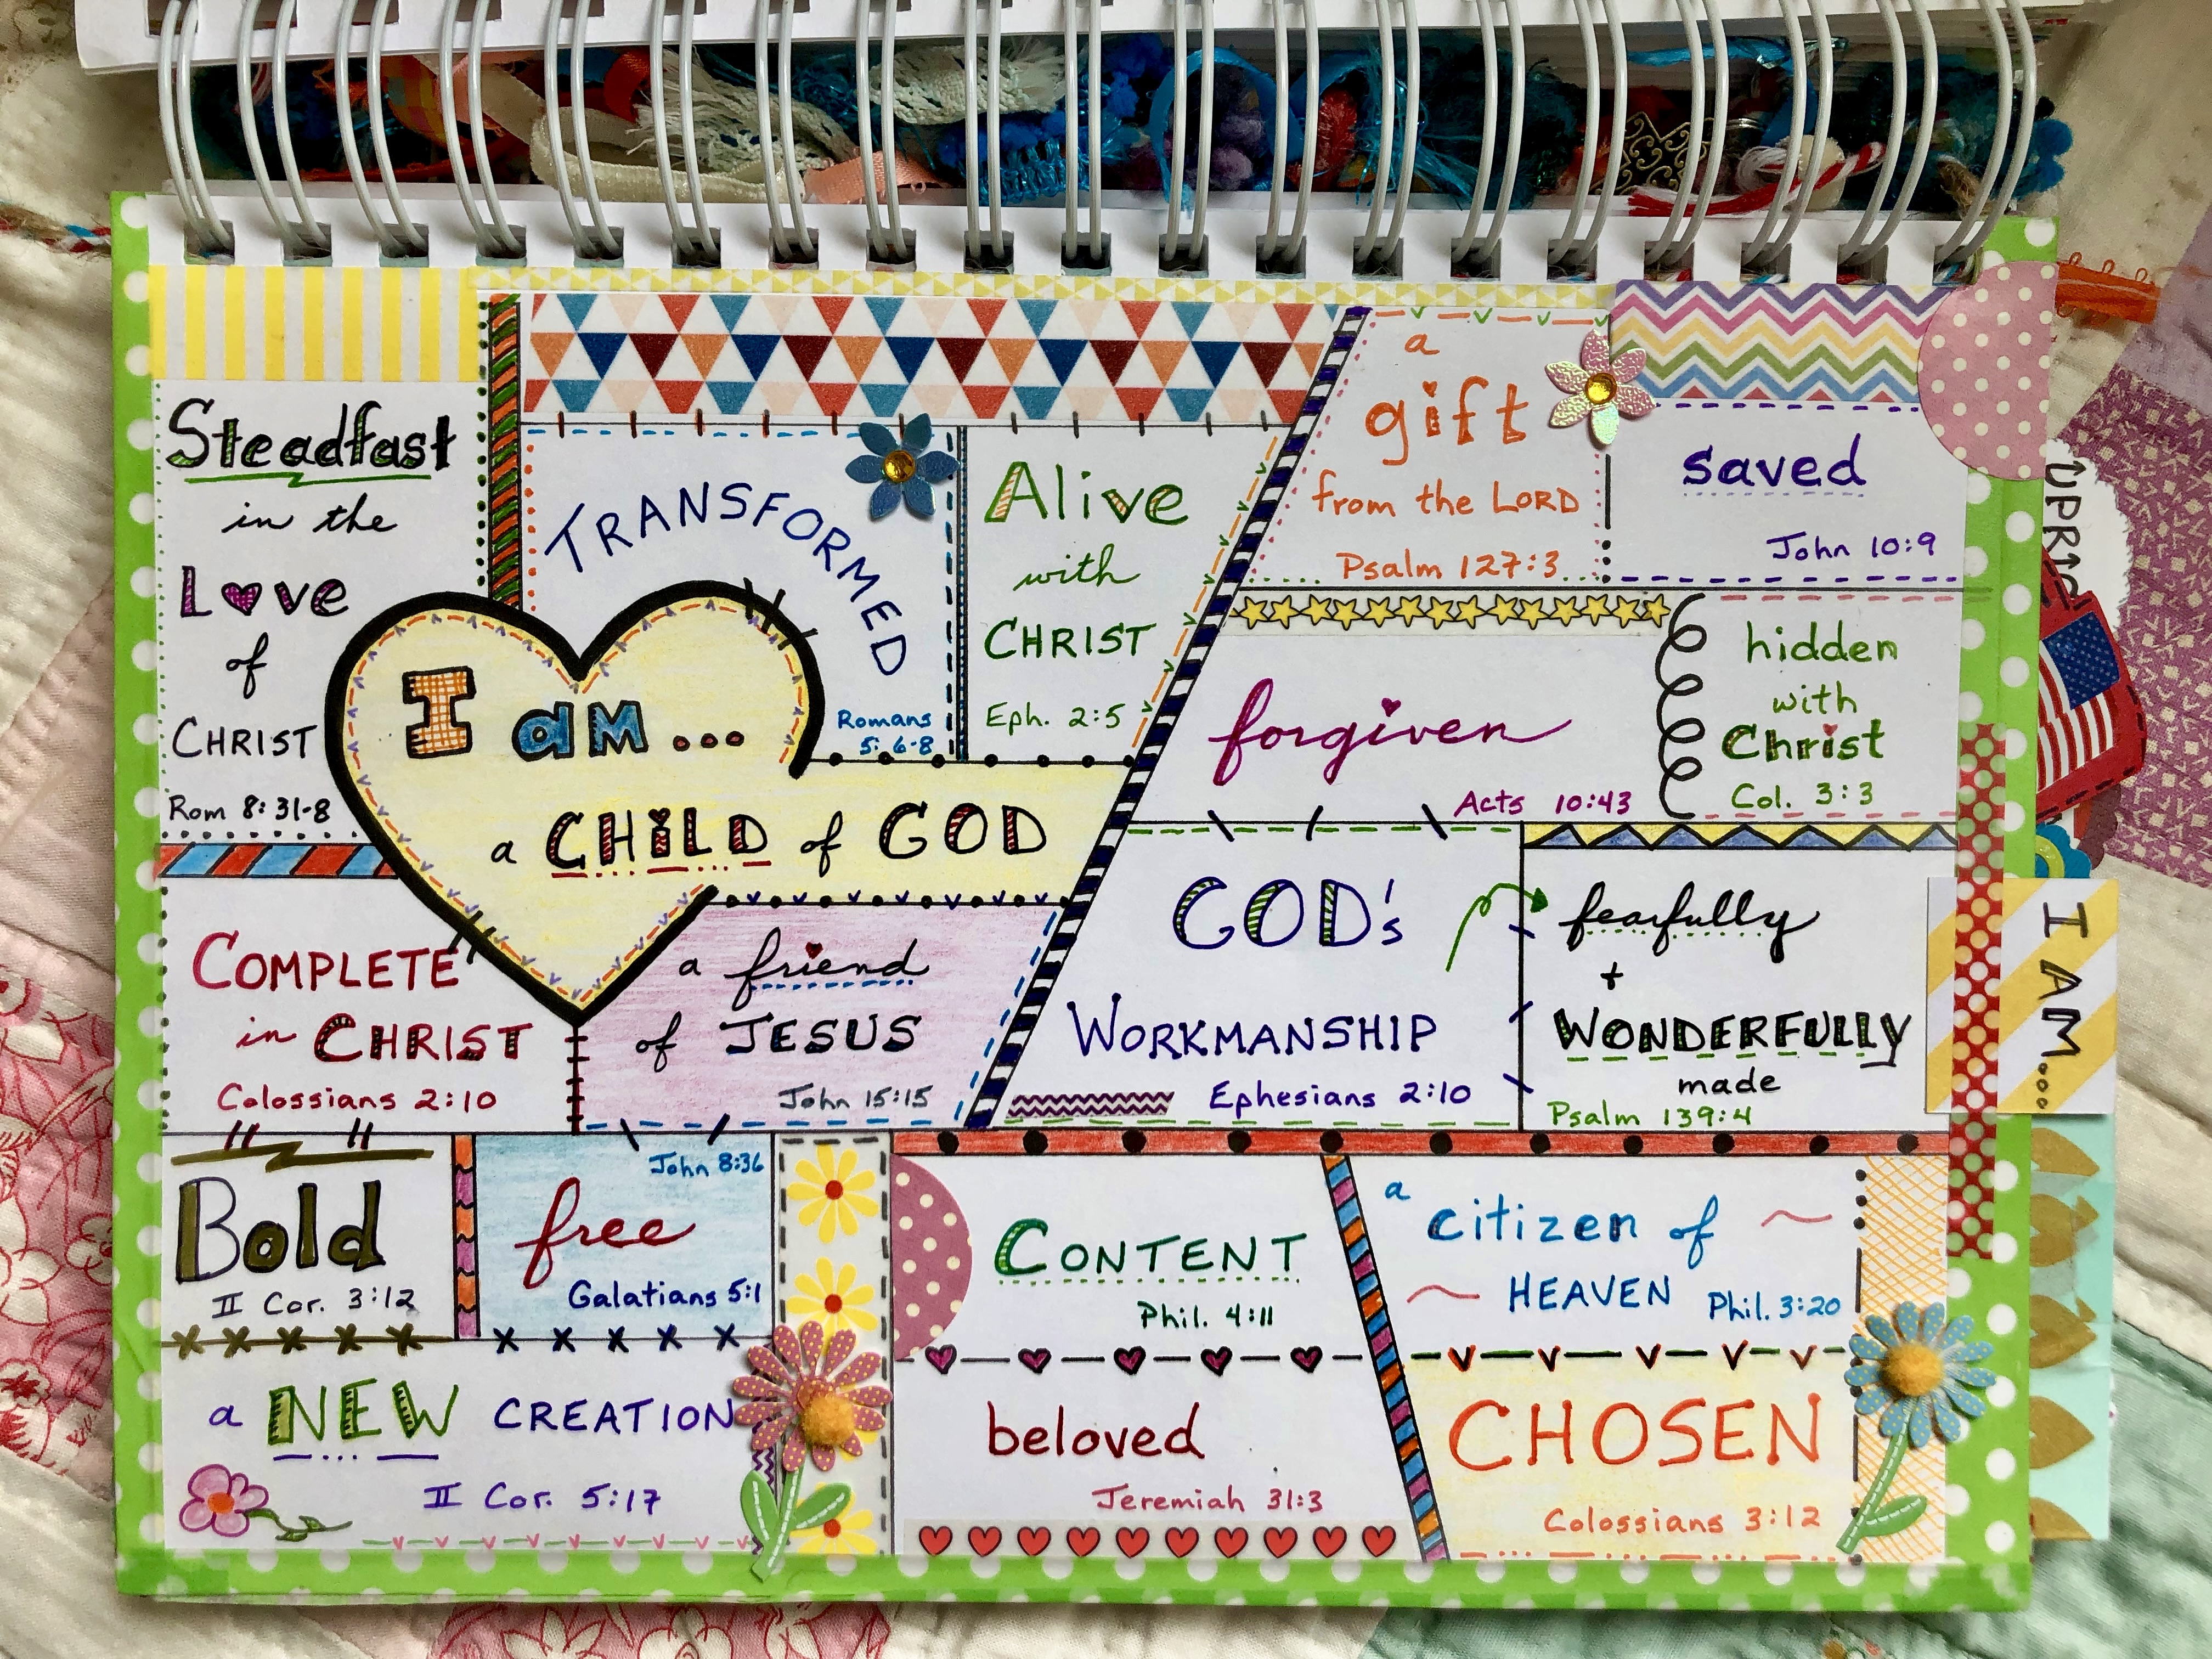 Steadfast
in the
Love
of
CHRIST
Rom 8:31-8
TRANSFORMED
Romans
5:6-8
Alive
with
CHRIST
Eph. 2:5
a
gift
from the LORD
Psalm 127:3
saved
John 10:9
I am...
a CHILD of GOD
forgiven
Acts 10:43
hidden
with
Christ
Col. 3:3
COMPLETE
in CHRIST
Colossians 2:10
a friend
of JESUS
John 15:15
GOD's
WORKMANSHIP
Ephesians 2:10
fearfully
+
WONDERFULLY
made
Psalm 139:4
Bold
II Cor. 3:12
John 8:36
free
Galatians 5:1
CONTENT
Phil. 4:11
a
citizen of
HEAVEN
Phil. 3:20
a NEW CREATION
II Cor. 5:17
beloved
Jeremiah 31:3
CHOSEN
Colossians 3:12
I AM...